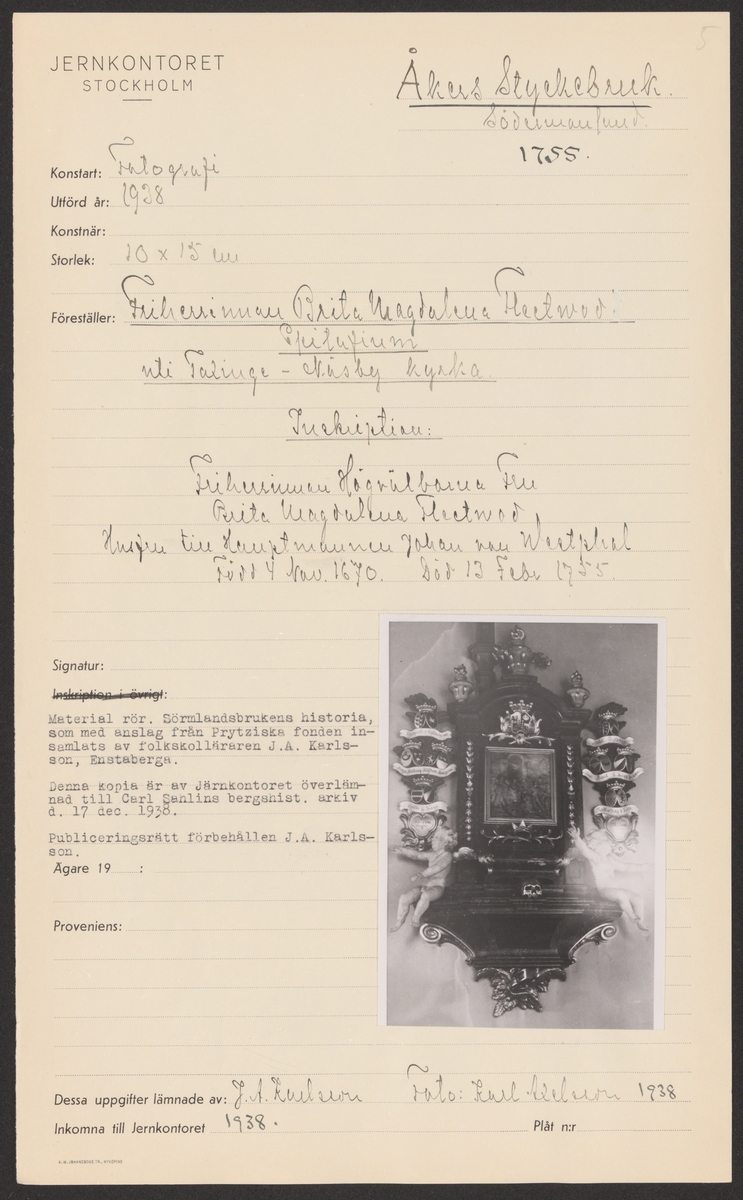 5
JERNKONTORET
STOCKHOLM
Åkers Styckebruk.
Södermanland.
1755.
Konstart: Fotografi
Utförd år: 1938
Konstnär:
Storlek: 10 x 15 cm
Föreställer: Friherrinnan Brita Magdalena Fleetwod
Epitafium
uti Taxinge - Näsby kyrka.
Inskription:
Friherrinnan Högvälborna Fru
Brita Magdalena Fleetwod
Husfru till Hauptmannen Johan von Westphal
Född 4 Nov. 1670. Död 13 Febr 1755.
Signatur:
Inskription i övrigt:
Material rör. Sörmlandsbrukens historia,
som med anslag från Prytziska fonden in-
samlats av folkskolläraren J.A. Karls-
son, Enstaberga.
Denna kopia är av Järnkontoret överläm-
nad till Carl Sahlins bergshist. arkiv
d. 17 dec. 1938.
Publiceringsrätt förbehållen J.A. Karls-
son.
Ägare 19 :
Proveniens:
Dessa uppgifter lämnade av: J. A. Karlsson Foto: Karl Axelsson 1938
Inkomna till Jernkontoret 1938. Plåt n:r